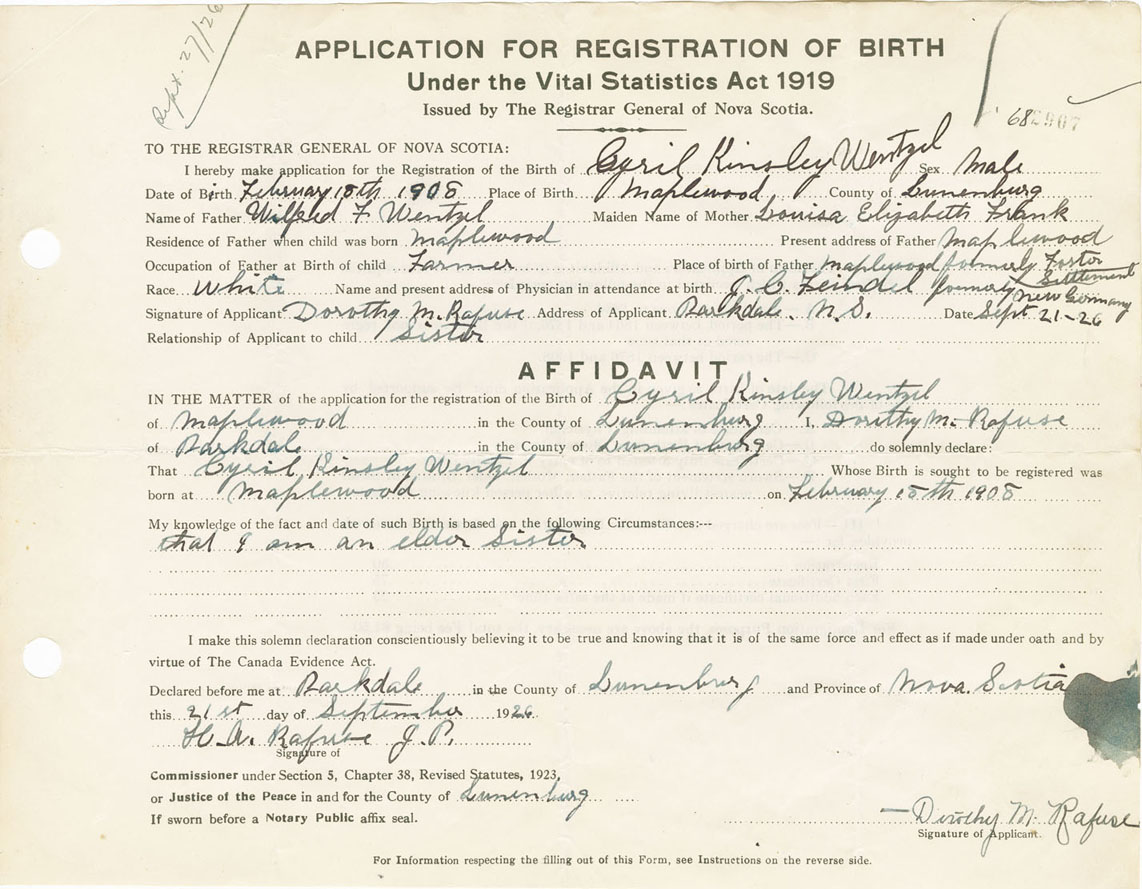 Sept. 27/26
APPLICATION FOR REGISTRATION OF BIRTH
Under the Vital Statistics Act 1919
Issued by The Registrar General of Nova Scotia.
68 907
TO THE REGISTRAR GENERAL OF NOVA SCOTIA:
I hereby make application for the Registration of the Birth of Cyril Kinsley Wentzel Sex Male
Date of Birth February 18th 1908 Place of Birth Maplewood County of Lunenburg
Name of Father Wilfred F. Wentzel Maiden Name of Mother Louisa Elizabeth Frank
Residence of Father when child was born Maplewood Present address of Father Maplewood
Occupation of Father at Birth of child Farmer Place of birth of Father Maplewood formerly Foster Settlement
Race White Name and present address of Physician in attendance at birth J. C. Feindel formerly New Germany
Signature of Applicant Dorothy M. Rafuse Address of Applicant Parkdale. N. S. Date Sept 21-26
Relationship of Applicant to child Sister
AFFIDAVIT
IN THE MATTER of the application for the registration of the Birth of Cyril Kinsley Wentzel
of Maplewood in the County of Lunenburg I, Dorothy M. Rafuse
of Parkdale in the County of Lunenburg do solemnly declare:
That Cyril Kinsley Wentzel Whose Birth is sought to be registered was
born at Maplewood on February 18th 1908
My knowledge of the fact and date of such Birth is based on the following Circumstances:---
that I am an elder Sister
I make this solemn declaration conscientiously believing it to be true and knowing that it is of the same force and effect as if made under oath and by
virtue of The Canada Evidence Act.
Declared before me at Parkdale in the County of Lunenburg and Province of Nova Scotia
this 21st day of September 1926
H. A. Rafuse J. P.
Signature of
Commissioner under Section 5, Chapter 38, Revised Statutes, 1923,
or Justice of the Peace in and for the County of Lunenburg
If sworn before a Notary Public affix seal.
Dorothy M. Rafuse
Signature of Applicant.
For Information respecting the filling out of this Form, see Instructions on the reverse side.